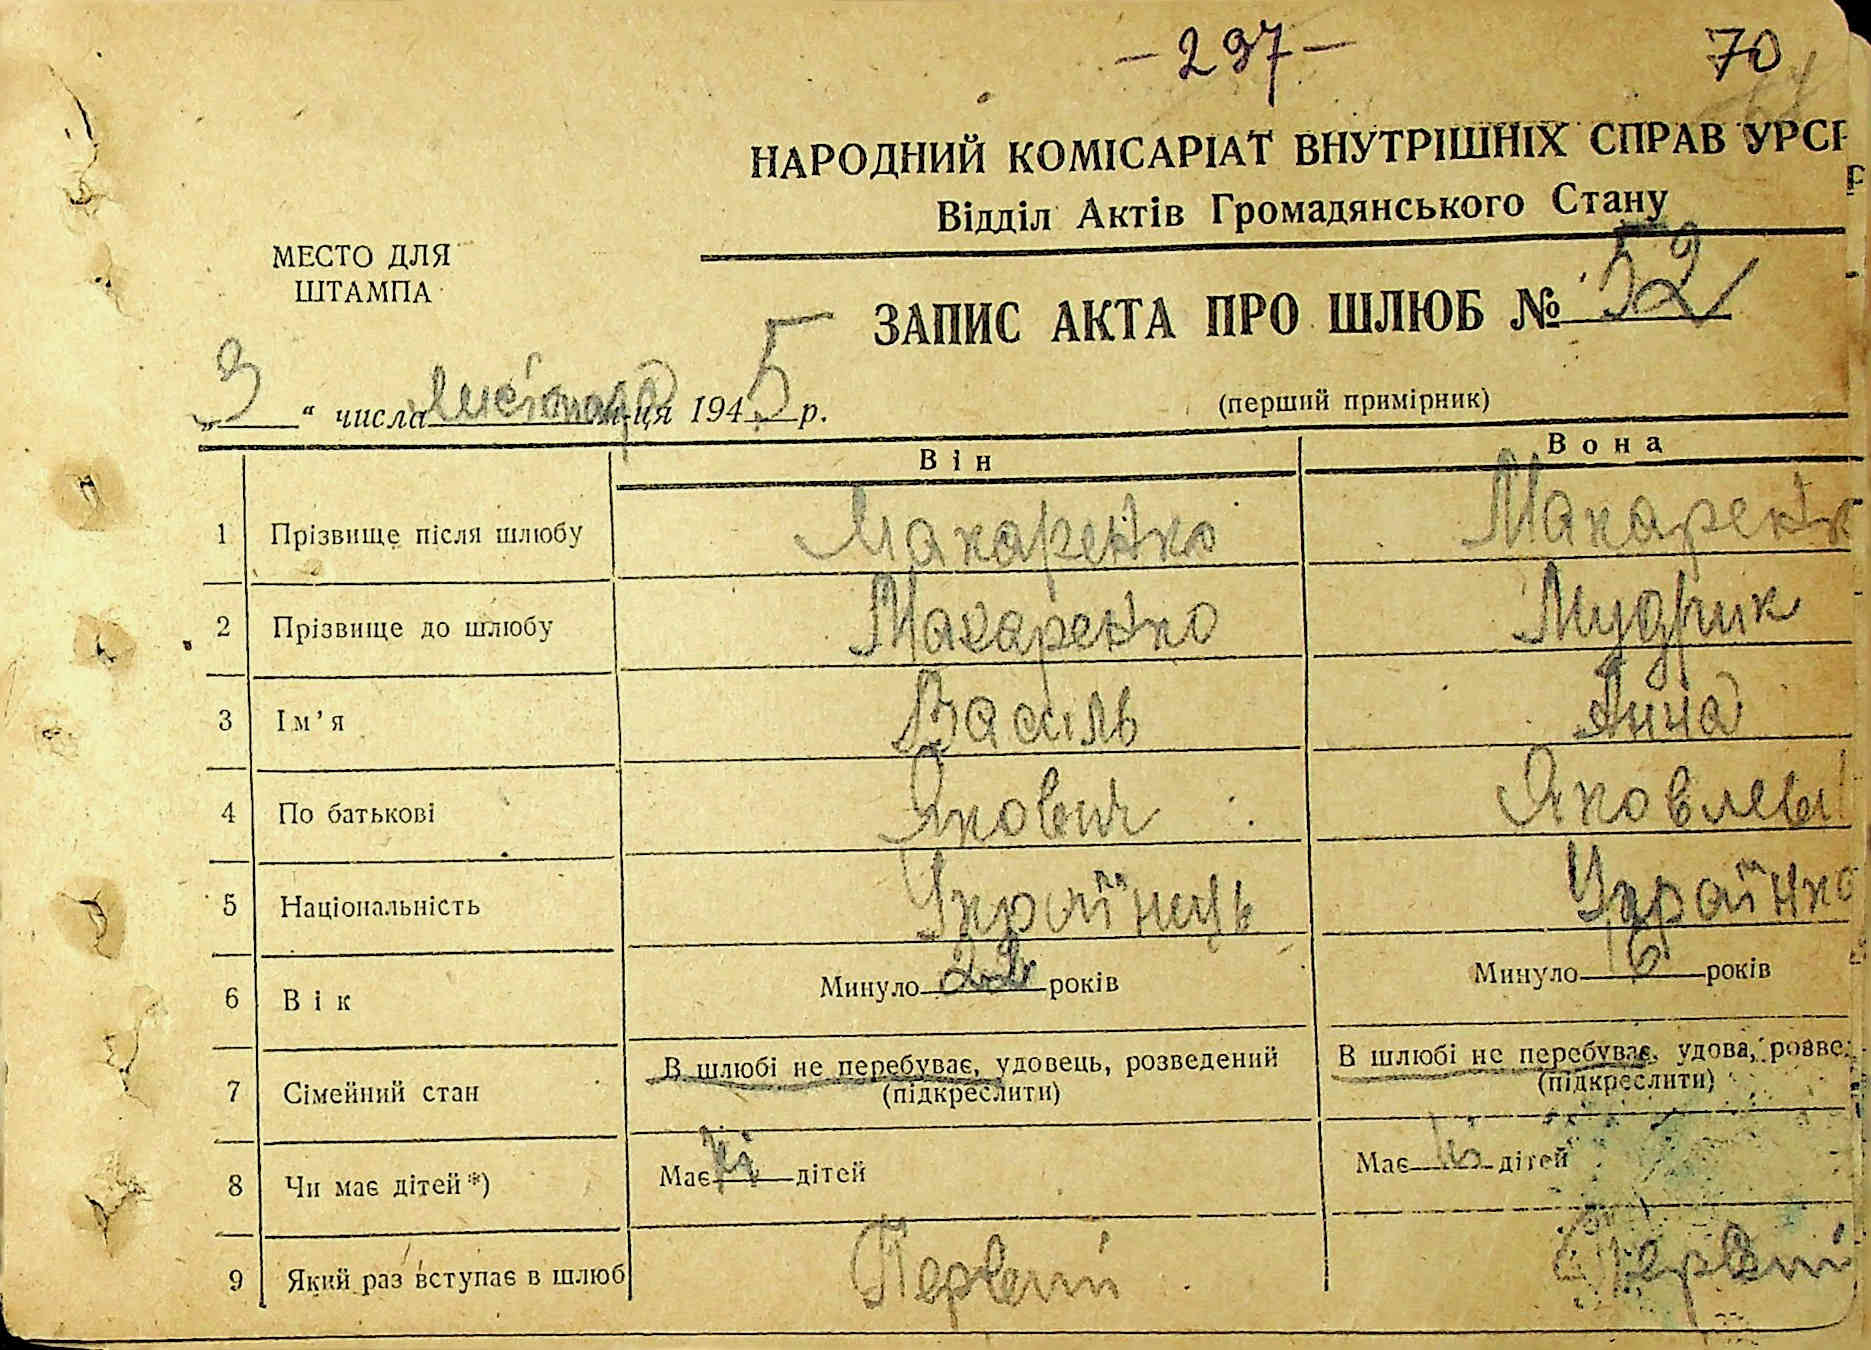 - 297 - 70
НАРОДНИЙ КОМІСАРІАТ ВНУТРІШНІХ СПРАВ УРСР
Відділ Актів Громадянського Стану
МЕСТО ДЛЯ
ШТАМПА
ЗАПИС АКТА ПРО ШЛЮБ № 52
„3“ числа листопада м-ця 1945 р.
(перший примірник)
Він Вона
1 Прізвище після шлюбу Макаренко Макаренк
2 Прізвище до шлюбу Макаренко Мудрик
3 Ім’я Василь Анна
4 По батькові Якович Яковлевн
5 Національність Українець Українка
6 Вік Минуло 22 років Минуло років
7 Сімейний стан В шлюбі не перебуває, удовець, розведений В шлюбі не перебуває, удова, розве
(підкреслити) (підкреслити)
8 Чи має дітей*) Має ні дітей Має ні дітей
9 Який раз вступає в шлюб Первий Первий